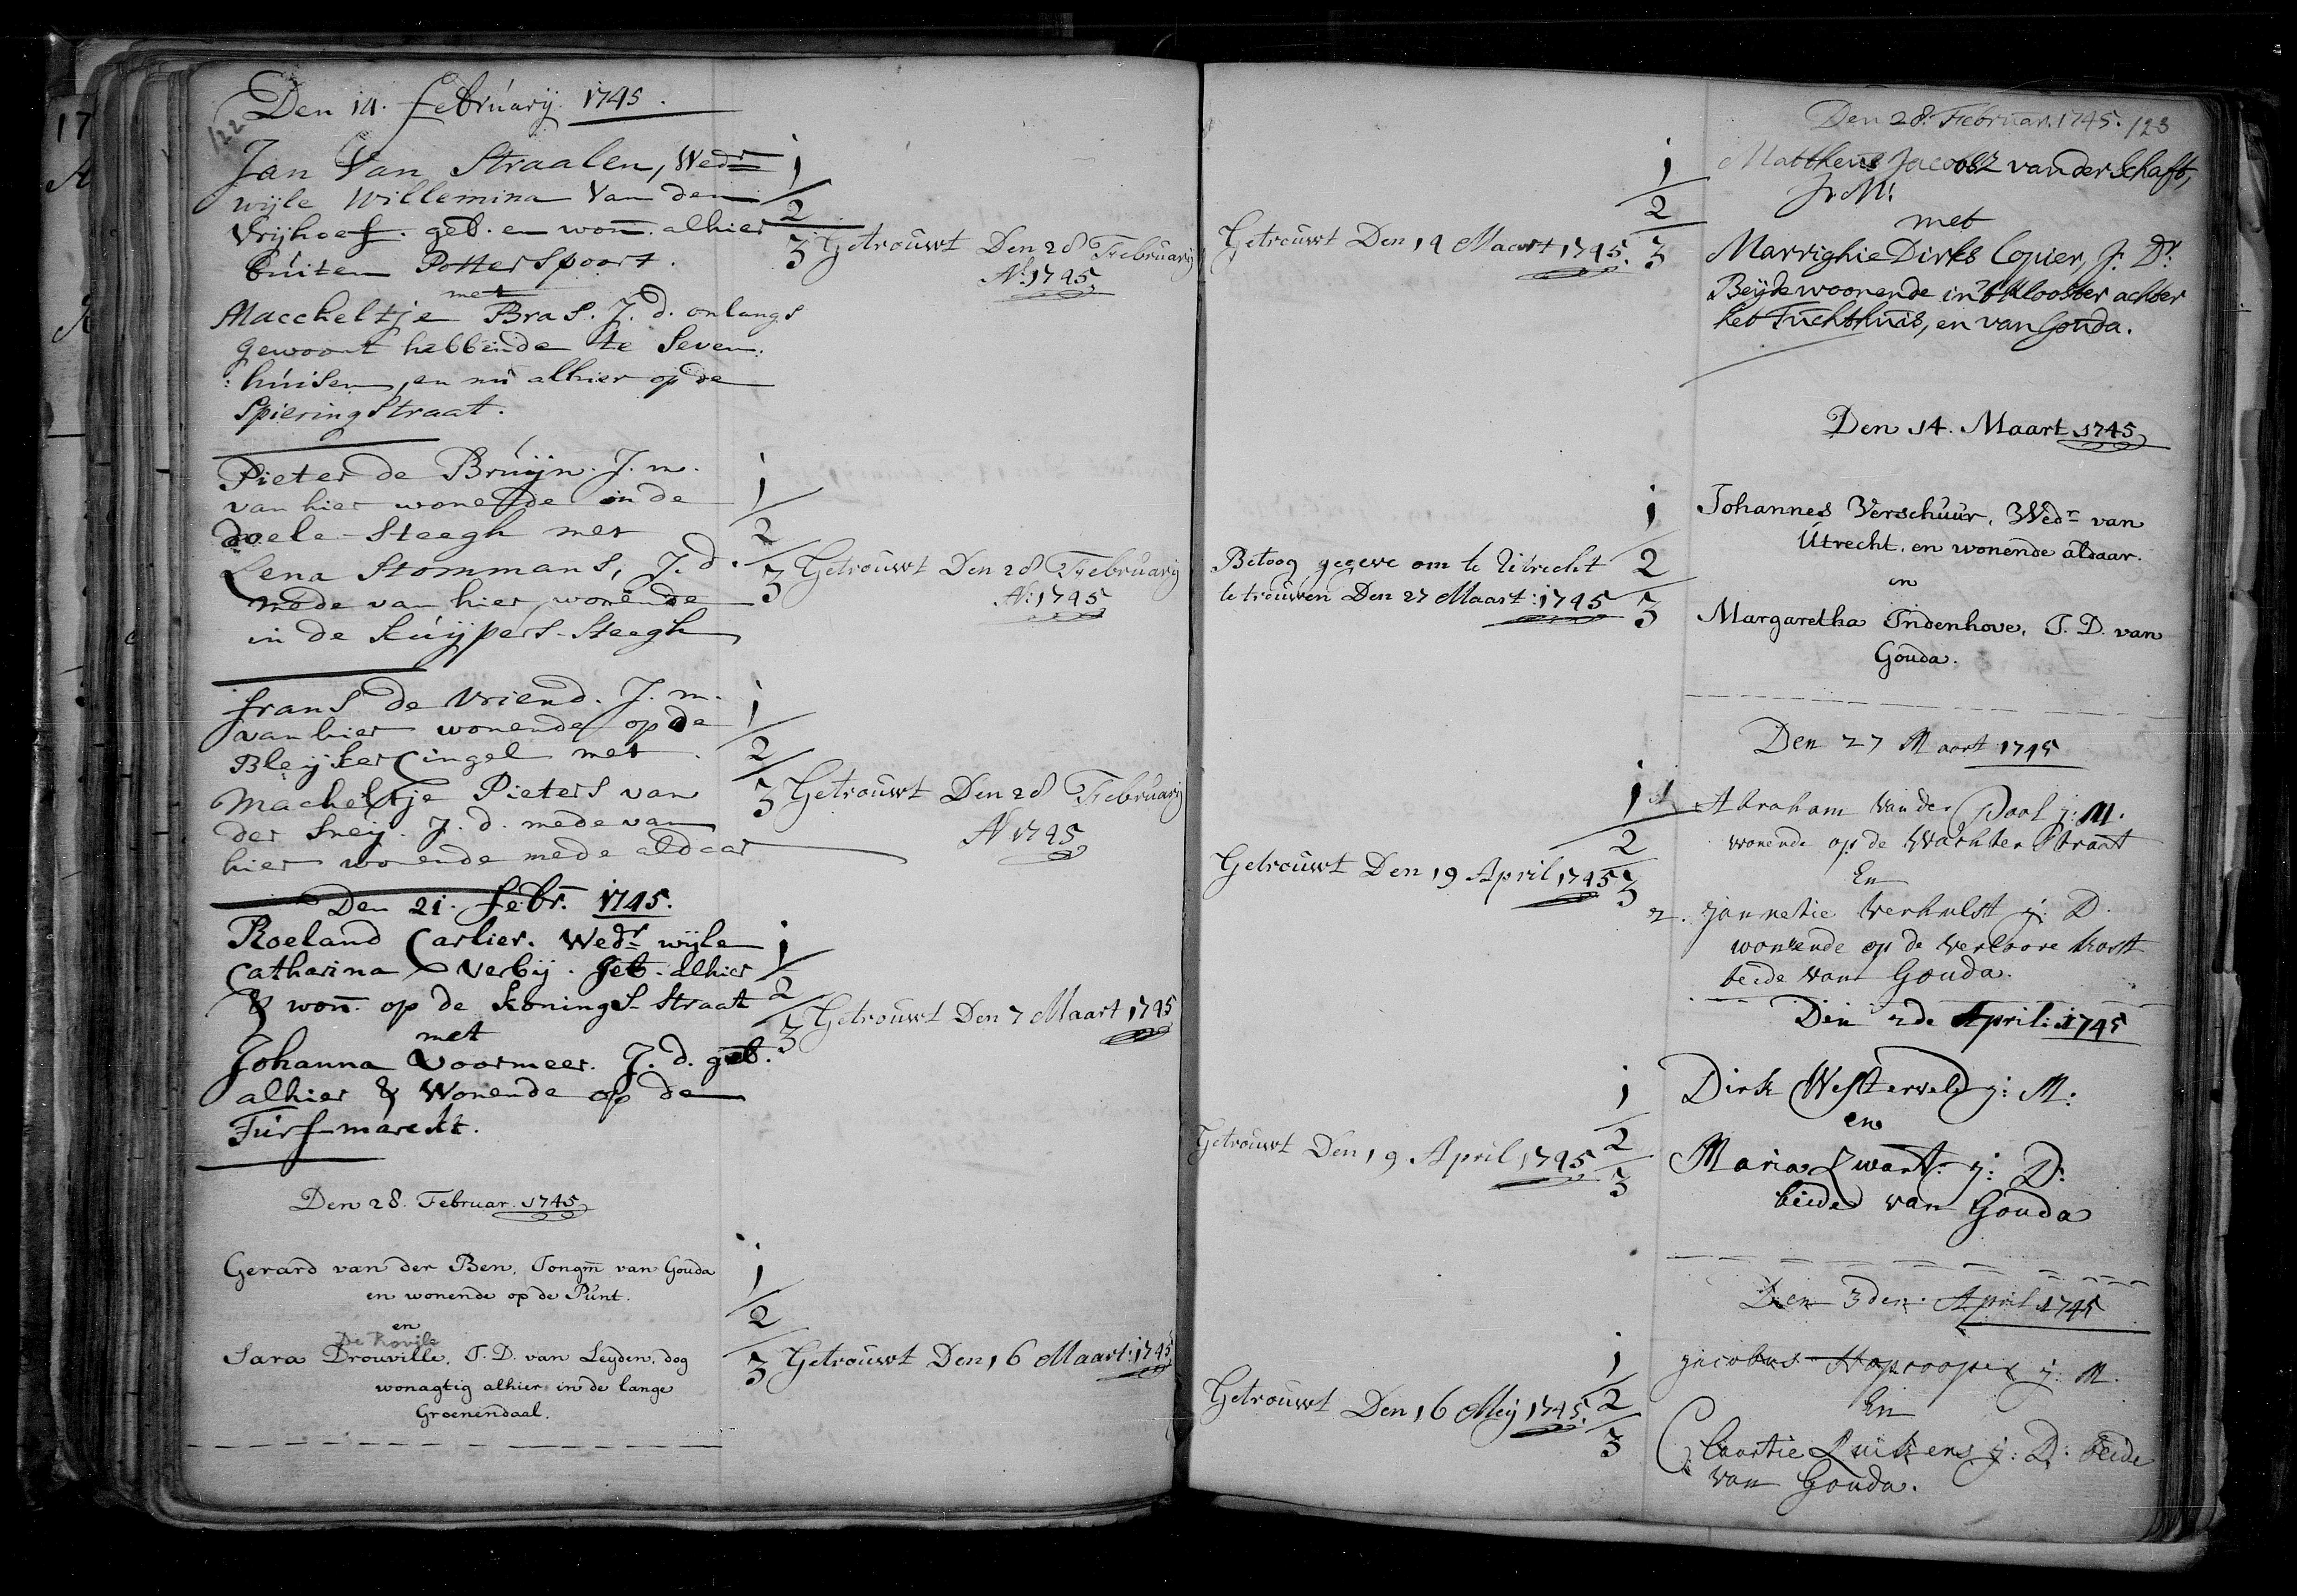 122
Den 14. february 1745.
Jan Van Straalen, Wedr
wijle Willemina Van den
Vrijhoef. geb. en won. alhier
buiten Potterspoort.
met
Maccheltje Bras. J. d. onlangs
gewoont hebbende te Seven:
:huisen, en nu alhier op de
Spieringstraat.
1
2
3 Getrouwt Den 28 February
Ao 1745.
Pieter de Bruijn. J. m.
van hier wonende in de
doele-Steegh met
Lena Stommans, J. d.
mede van hier, wonende
in de Kuijpers-Steegh
1
2
3 Getrouwt Den 28 February
A: 1745
frans de Vriend. J. m.
van hier wonende op de
Bleijkersingel met
Macheltje Pieters van
der Sneij. J. d. mede van
hier wonende mede aldaar
1
2
3 Getrouwt Den 28 February
A 1745
Den 21. febr. 1745.
Roeland Carlier. Wedr wijle
Catharina Verbij. geb. alhier
& won. op de Konings-Straat
met
Johanna Voormeer. J. d. geb.
alhier & Wonende op de
Turfmarckt.
1
2
3 Getrouwt Den 7 Maart 1745
Den 28. Februar. 1745
Gerard van der Ben. Jongm van Gouda
en wonende op de Punt.
en
De Rovile
Sara Drouville. J. D. van Leyden. dog
wonagtig alhier in de lange
Groenendaal.
1
2
3 Getrouwt Den 16 Maart: 1745
Den 28. Februar. 1745. 123
Mattheus Jacobsz van der Schaft,
J. M:
met
Marrighie Dirks Copier, J. D:
Beijde woonende in 't Klooster achter
het Tuchthuis, en van Gouda.
1
2
Getrouwt Den 14 Maart 1745. 3
Den 14. Maart 1745
Johannes Verschuur. Wedr van
Utrecht. en wonende aldaar.
en
Margaretha Indenhove. J. D. van
Gouda.
1
Betoog gegeve om te Utrecht 2
te trouwen Den 27 Maart: 1745 3
Den 27 Maart 1745
1 Abraham van der Pool j: M.
wonende op de Wachter Straat
En
2. Jannetie Verhulst j: D.
wonende op de Verloore Kost
beide van Gouda.
1
2
Getrouwt Den 19 April 1745 3
Den 2de April: 1745
Dirk Westerveld j: M:
en
Maria Zwart. j: D:
beide van Gouda
1
2
Getrouwt Den 19 April 1745 3
Den 3den April 1745
jacobus Hoprooper j: M.
En
Claartie Luikens j: D: beide
van Gouda.
1
2
Getrouwt Den 16 Meij 1745. 3